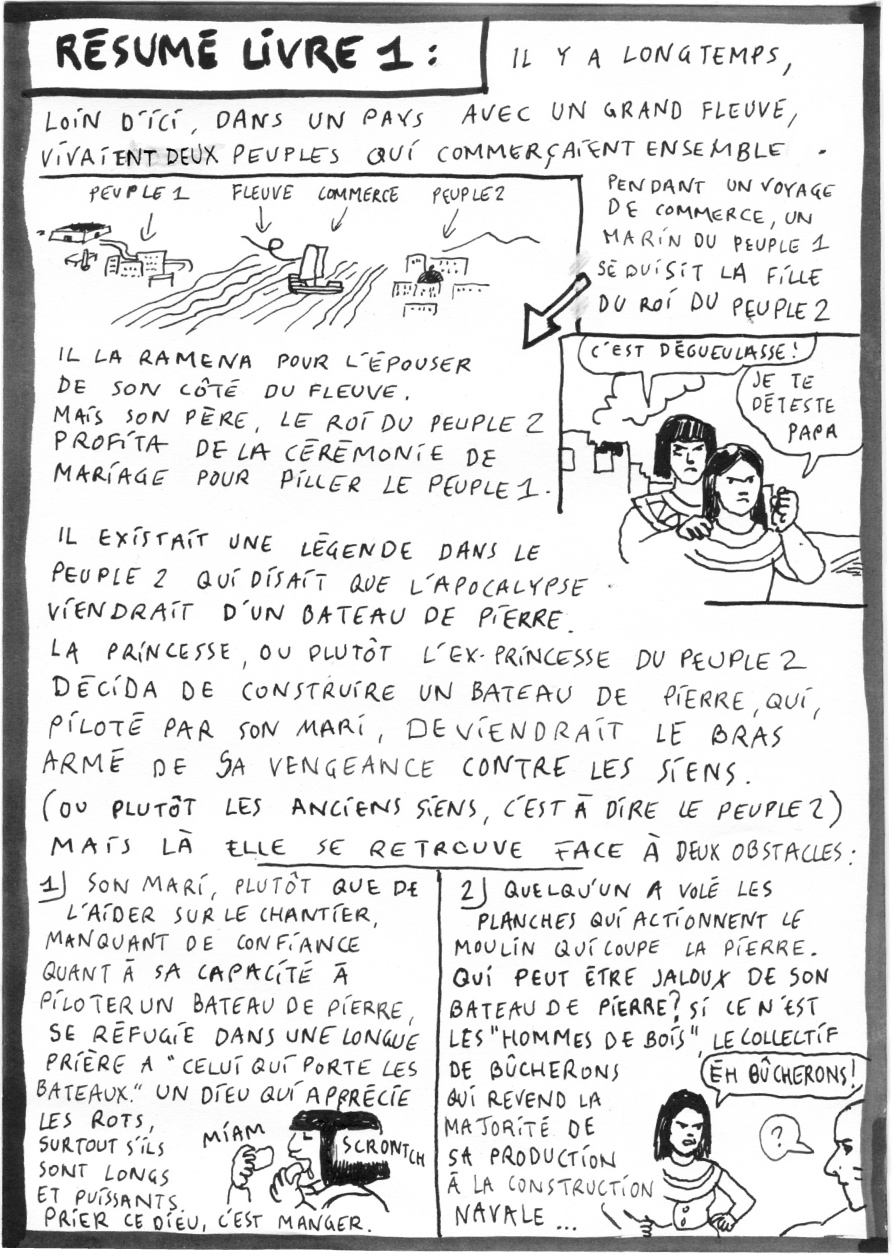 RÉSUMÉ LIVRE 1 :
IL Y A LONGTEMPS,
LOIN D'ICI, DANS UN PAYS AVEC UN GRAND FLEUVE,
VIVAIENT DEUX PEUPLES QUI COMMERÇAIENT ENSEMBLE.
PEUPLE 1 FLEUVE COMMERCE PEUPLE 2
PENDANT UN VOYAGE
DE COMMERCE, UN
MARIN DU PEUPLE 1
SÉDUISIT LA FILLE
DU ROI DU PEUPLE 2
IL LA RAMENA POUR L'ÉPOUSER
DE SON CÔTÉ DU FLEUVE.
MAIS SON PÈRE, LE ROI DU PEUPLE 2
PROFITA DE LA CÉRÉMONIE DE
MARIAGE POUR PILLER LE PEUPLE 1.
C'EST DÉGUEULASSE!
JE TE
DÉTESTE
PAPA
IL EXISTAIT UNE LÉGENDE DANS LE
PEUPLE 2 QUI DISAIT QUE L'APOCALYPSE
VIENDRAIT D'UN BATEAU DE PIERRE.
LA PRINCESSE, OU PLUTÔT L'EX-PRINCESSE DU PEUPLE 2
DÉCIDA DE CONSTRUIRE UN BATEAU DE PIERRE, QUI,
PILOTÉ PAR SON MARI, DEVIENDRAIT LE BRAS
ARMÉ DE SA VENGEANCE CONTRE LES SIENS.
(OU PLUTÔT LES ANCIENS SIENS, C'EST À DIRE LE PEUPLE 2)
MAIS LÀ ELLE SE RETROUVE FACE À DEUX OBSTACLES :
1) SON MARI, PLUTÔT QUE DE
L'AIDER SUR LE CHANTIER,
MANQUANT DE CONFIANCE
QUANT À SA CAPACITÉ À
PILOTER UN BATEAU DE PIERRE,
SE RÉFUGIE DANS UNE LONGUE
PRIÈRE A "CELUI QUI PORTE LES
BATEAUX." UN DIEU QUI APPRÉCIE
LES ROTS,
SURTOUT S'ILS
SONT LONGS
ET PUISSANTS
PRIER CE DIEU, C'EST MANGER.
MIAM
SCRONTCH
2) QUELQU'UN A VOLÉ LES
PLANCHES QUI ACTIONNENT LE
MOULIN QUI COUPE LA PIERRE.
QUI PEUT ÊTRE JALOUX DE SON
BATEAU DE PIERRE? SI CE N'EST
LES "HOMMES DE BOIS", LE COLLECTIF
DE BÛCHERONS
QUI REVEND LA
MAJORITÉ DE
SA PRODUCTION
À LA CONSTRUCTION
NAVALE ...
ÉH BÛCHERONS!
?